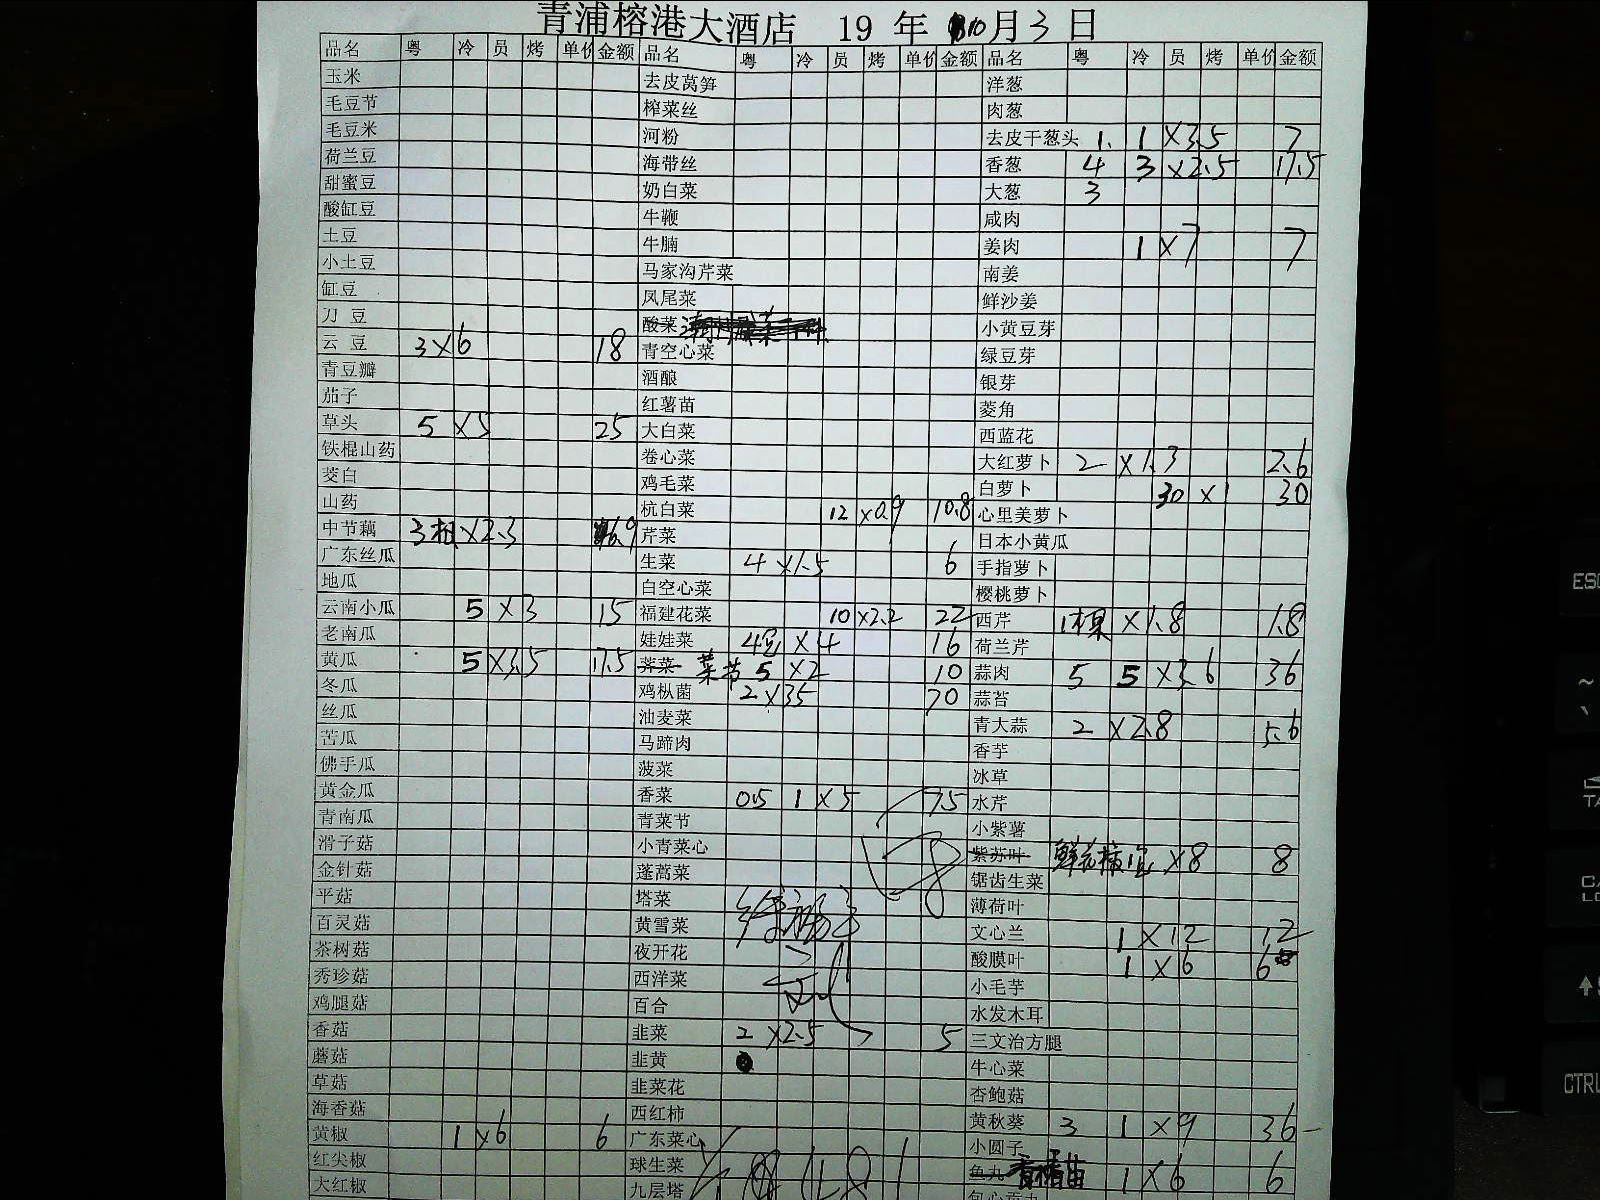 青浦榕港大酒店 19 年 10月3日
品名 粤 冷 员 烤 单价 金额 品名 粤 冷 员 烤 单价 金额 品名 粤 冷 员 烤 单价 金额
玉米 去皮莴笋 洋葱
毛豆节 榨菜丝 肉葱
毛豆米 河粉 去皮干葱头 1. 1 ×3.5 7
荷兰豆 海带丝 香葱 4 3 ×2.5 17.5
甜蜜豆 奶白菜 大葱 3
酸缸豆 牛鞭 咸肉
土豆 牛腩 姜肉 1 ×7 7
小土豆 马家沟芹菜 南姜
缸豆 凤尾菜 鲜沙姜
刀 豆 酸菜 小黄豆芽
云 豆 3×6 18 青空心菜 绿豆芽
青豆瓣 酒酿 银芽
茄子 红薯苗 菱角
草头 5 ×5 25 大白菜 西蓝花
铁棍山药 卷心菜 大红萝卜 2 ×1.3 2.6
茭白 鸡毛菜 白萝卜 30 ×1 30
山药 杭白菜 12 ×0.9 10.8 心里美萝卜
中节藕 3根×2.3 6.9 芹菜 日本小黄瓜
广东丝瓜 生菜 4 ×1.5 6 手指萝卜
地瓜 白空心菜 樱桃萝卜
云南小瓜 5 ×3 15 福建花菜 10 ×2.2 22 西芹 1棵 ×1.8 1.8
老南瓜 娃娃菜 4包 ×4 16 荷兰芹
黄瓜 5 ×3.5 17.5 荠菜 菜节 5 ×2 10 蒜肉 5 5 ×3.6 36
冬瓜 鸡枞菌 2 ×35 70 蒜苔
丝瓜 油麦菜 青大蒜 2 ×2.8 5.6
苦瓜 马蹄肉 香芋
佛手瓜 菠菜 冰草
黄金瓜 香菜 0.5 1 ×5 7.5 水芹
青南瓜 青菜节 小紫薯
滑子菇 小青菜心 紫苏叶 ×8 8
金针菇 蓬蒿菜 锯齿生菜
平菇 塔菜 薄荷叶
百灵菇 黄雪菜 文心兰 1 ×12 12
茶树菇 夜开花 酸膜叶 1 ×6 6
秀珍菇 西洋菜 小毛芋
鸡腿菇 百合 水发木耳
香菇 韭菜 2 ×2.5 5 三文治方腿
蘑菇 韭黄 牛心菜
草菇 韭菜花 杏鲍菇
海香菇 西红柿 黄秋葵 3 1 ×9 36
黄椒 1 ×6 6 广东菜心 小圆子
红尖椒 球生菜 鱼丸 1 ×6 6
大红椒 九层塔
ESC
~
CTRL